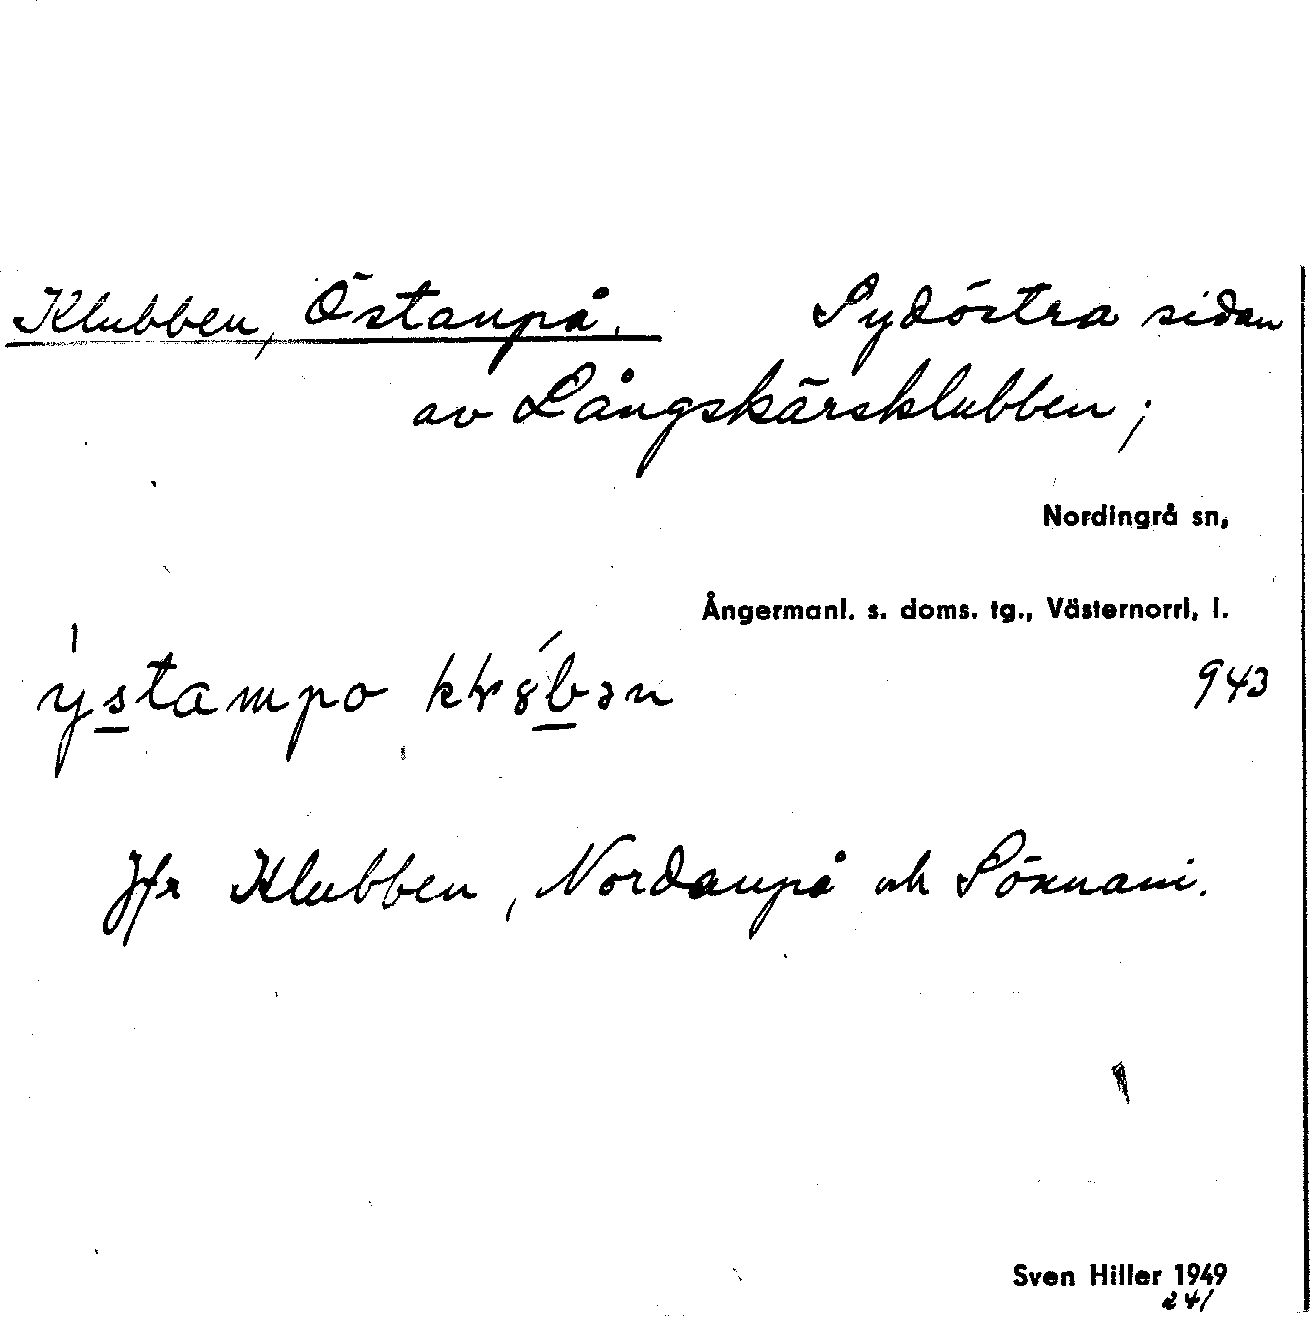 Klubben, Östanpå. Sydöstra sidan
av Långskärsklubben;
Nordingrå sn,
Ångermanl. s. doms. tg., Västernorrl. l.
943
Jfr Klubben, Nordanpå och Sönnani.
Sven Hiller 1949
241